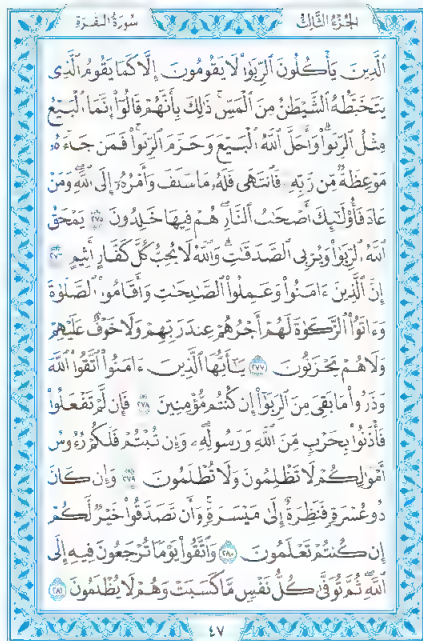 الجزء الثالث
سورة البقرة
ٱلَّذِينَ يَأۡكُلُونَ ٱلرِّبَوٰاْ لَا يَقُومُونَ إِلَّا كَمَا يَقُومُ ٱلَّذِي
يَتَخَبَّطُهُ ٱلشَّيۡطَٰنُ مِنَ ٱلۡمَسِّۚ ذَٰلِكَ بِأَنَّهُمۡ قَالُوٓاْ إِنَّمَا ٱلۡبَيۡعُ
مِثۡلُ ٱلرِّبَوٰاْۗ وَأَحَلَّ ٱللَّهُ ٱلۡبَيۡعَ وَحَرَّمَ ٱلرِّبَوٰاْۚ فَمَن جَآءَهُۥ
مَوۡعِظَةٞ مِّن رَّبِّهِۦ فَٱنتَهَىٰ فَلَهُۥ مَا سَلَفَ وَأَمۡرُهُۥٓ إِلَى ٱللَّهِۖ وَمَنۡ
عَادَ فَأُوْلَٰٓئِكَ أَصۡحَٰبُ ٱلنَّارِۖ هُمۡ فِيهَا خَٰلِدُونَ ٢٧٥ يَمۡحَقُ
ٱللَّهُ ٱلرِّبَوٰاْ وَيُرۡبِي ٱلصَّدَقَٰتِۗ وَٱللَّهُ لَا يُحِبُّ كُلَّ كَفَّارٍ أَثِيمٍ ٢٧٦
إِنَّ ٱلَّذِينَ ءَامَنُواْ وَعَمِلُواْ ٱلصَّٰلِحَٰتِ وَأَقَامُواْ ٱلصَّلَوٰةَ
وَءَاتَوُاْ ٱلزَّكَوٰةَ لَهُمۡ أَجۡرُهُمۡ عِندَ رَبِّهِمۡ وَلَا خَوۡفٌ عَلَيۡهِمۡ
وَلَا هُمۡ يَحۡزَنُونَ ٢٧٧ يَٰٓأَيُّهَا ٱلَّذِينَ ءَامَنُواْ ٱتَّقُواْ ٱللَّهَ
وَذَرُواْ مَا بَقِيَ مِنَ ٱلرِّبَوٰٓاْ إِن كُنتُم مُّؤۡمِنِينَ ٢٧٨ فَإِن لَّمۡ تَفۡعَلُواْ
فَأۡذَنُواْ بِحَرۡبٖ مِّنَ ٱللَّهِ وَرَسُولِهِۦۖ وَإِن تُبۡتُمۡ فَلَكُمۡ رُءُوسُ
أَمۡوَٰلِكُمۡ لَا تَظۡلِمُونَ وَلَا تُظۡلَمُونَ ٢٧٩ وَإِن كَانَ
ذُو عُسۡرَةٖ فَنَظِرَةٌ إِلَىٰ مَيۡسَرَةٖۚ وَأَن تَصَدَّقُواْ خَيۡرٞ لَّكُمۡ
إِن كُنتُمۡ تَعۡلَمُونَ ٢٨٠ وَٱتَّقُواْ يَوۡمٗا تُرۡجَعُونَ فِيهِ إِلَى
ٱللَّهِۖ ثُمَّ تُوَفَّىٰ كُلُّ نَفۡسٖ مَّا كَسَبَتۡ وَهُمۡ لَا يُظۡلَمُونَ ٢٨١
٤٧